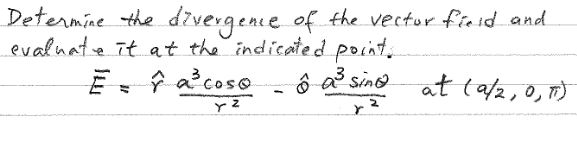 Determine the divergence of the vector field and
evaluate it at the indicated point.
Ē = r̂ a³cosθ/r² - θ̂ a³sinθ/r² at (a/2, 0, π)